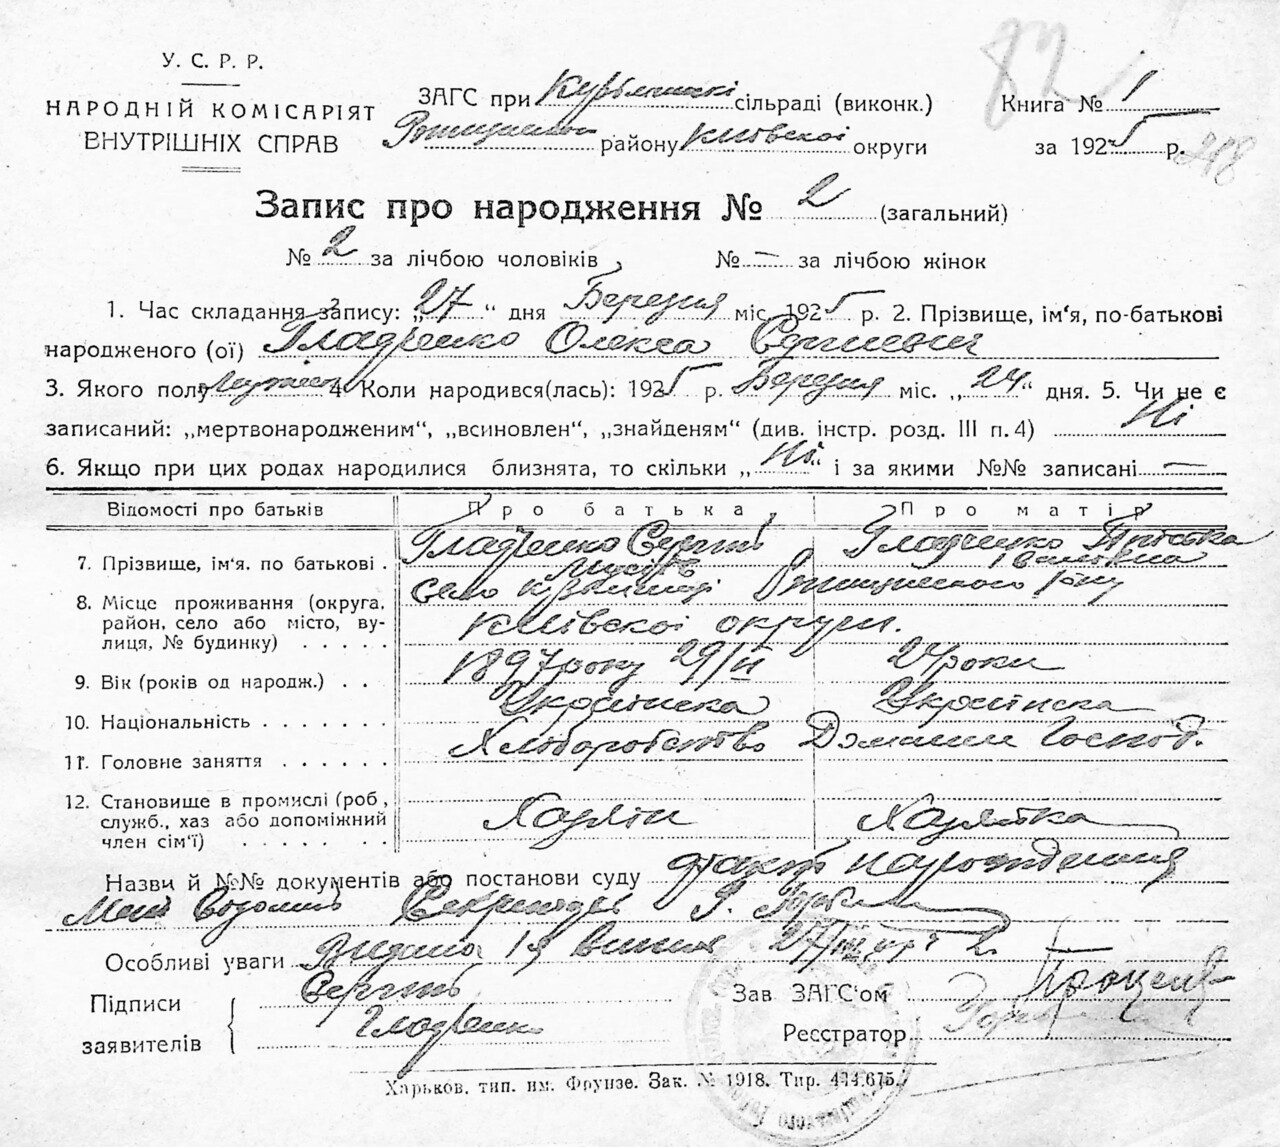 У. С. Р. Р.
НАРОДНІЙ КОМІСАРІЯТ
ВНУТРІШНІХ СПРАВ
ЗАГС при сільраді (виконк.)
району Київскої округи
Книга № 1
за 1925 р.
82
218
Запис про народження № 2 (загальний)
№ 2 за лічбою чоловіків, № — за лічбою жінок
1. Час складання запису: „27“ дня Березня міс. 1925 р. 2. Прізвище, ім‘я, по-батькові
народженого (ої) Гладченко Олекса Сергиевич
3. Якого полу 4 Коли народився(лась): 1925 р. Березня міс. „24“ дня. 5. Чи не є
записаний: „мертвонародженим“, „всиновлен“, „знайденям“ (див. інстр. розд. III п. 4) Ні
6. Якщо при цих родах народилися близнята, то скільки „Ні“ і за якими №№ записані —
Відомості про батьків Про батька, Про матір
7. Прізвище, ім‘я. по батькові . Гладченко Сергій Гладченко Пріська
Івановна
8. Місце проживання (округа, Село
район, село або місто, ву- Київскої округи.
лиця, № будинку) . . . . .
9. Вік (років од народж.) . . 1897 року 29/II 24 роки
10. Національність . . . . . . . Українска Українска
11. Головне заняття . . . . . . Хліборобство Домашне Господ.
12. Становище в промислі (роб, Хазяїн Хазяйка
служб., хаз або допоміжний
член сім‘ї) . . . . .
Назви й №№ документів або постанови суду факт народження
Секретарь
Особливі уваги
Підписи
заявителів
Сергій
Гладченко
Зав ЗАГС‘ом
Реєстратор
Харьков, тип. им. Фрунзе. Зак. № 1918. Тир. 444.675.